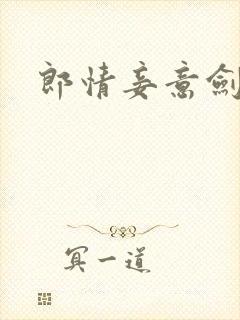 郎情妾意劍
冥一道